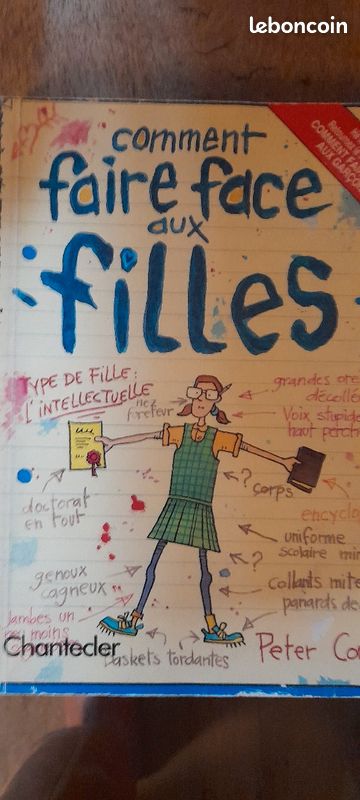 leboncoin
COMMENT
AUX GARÇO
comment
faire face
aux
filles
TYPE DE FILLE:
L'INTELLECTUELLE
nez
fureteur
grandes ore
décollé
Voix stupide
haut perch
doctorat
en tout
?
corps
encyclo
uniforme
scolaire min
?
genoux
cagneux
collants mite
panards de
Jambes un
moins
Chantecler
baskets tordantes
Peter Co